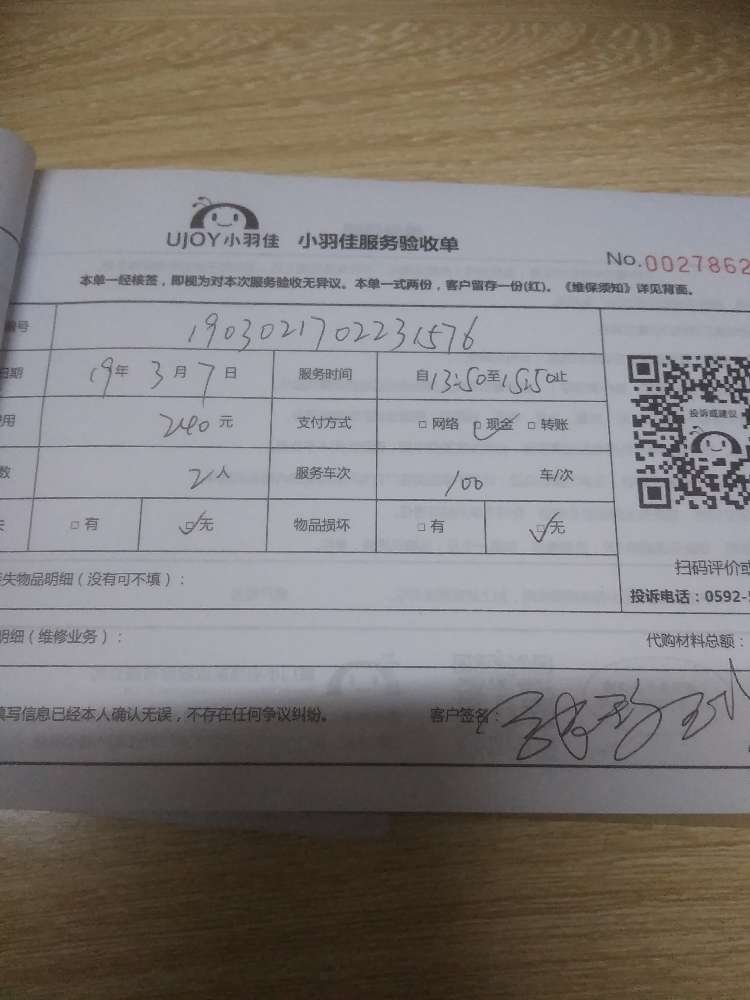 UJOY小羽佳 小羽佳服务验收单
No.0027862
本单一经核签，即视为对本次服务验收无异议。本单一式两份，客户留存一份(红)。《维保须知》详见背面。
编号 1903021702231576
日期 19年 3月 7日 服务时间 自13:50至15:50止
费用 240元 支付方式 □网络 □现金 □转账
数 2人 服务车次 100 车/次
投诉或建议
失 □有 □无 物品损坏 □有 □无
失物品明细（没有可不填）：
扫码评价或
投诉电话：0592-5
明细（维修业务）： 代购材料总额：
填写信息已经本人确认无误，不存在任何争议纠纷。 客户签名：